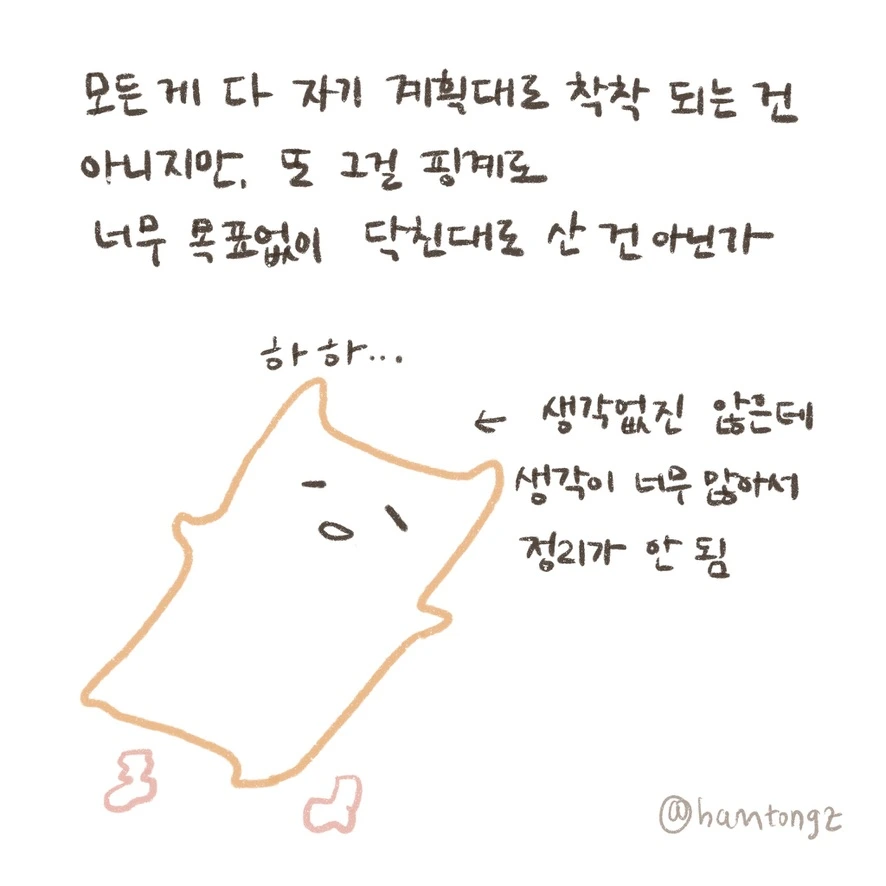 모든 게 다 자기 계획대로 착착 되는 건
아니지만, 또 그걸 핑계로
너무 목표없이 닥친대로 산 건 아닌가
하하...
← 생각없진 않은데
생각이 너무 많아서
정리가 안 됨
@hamtongz